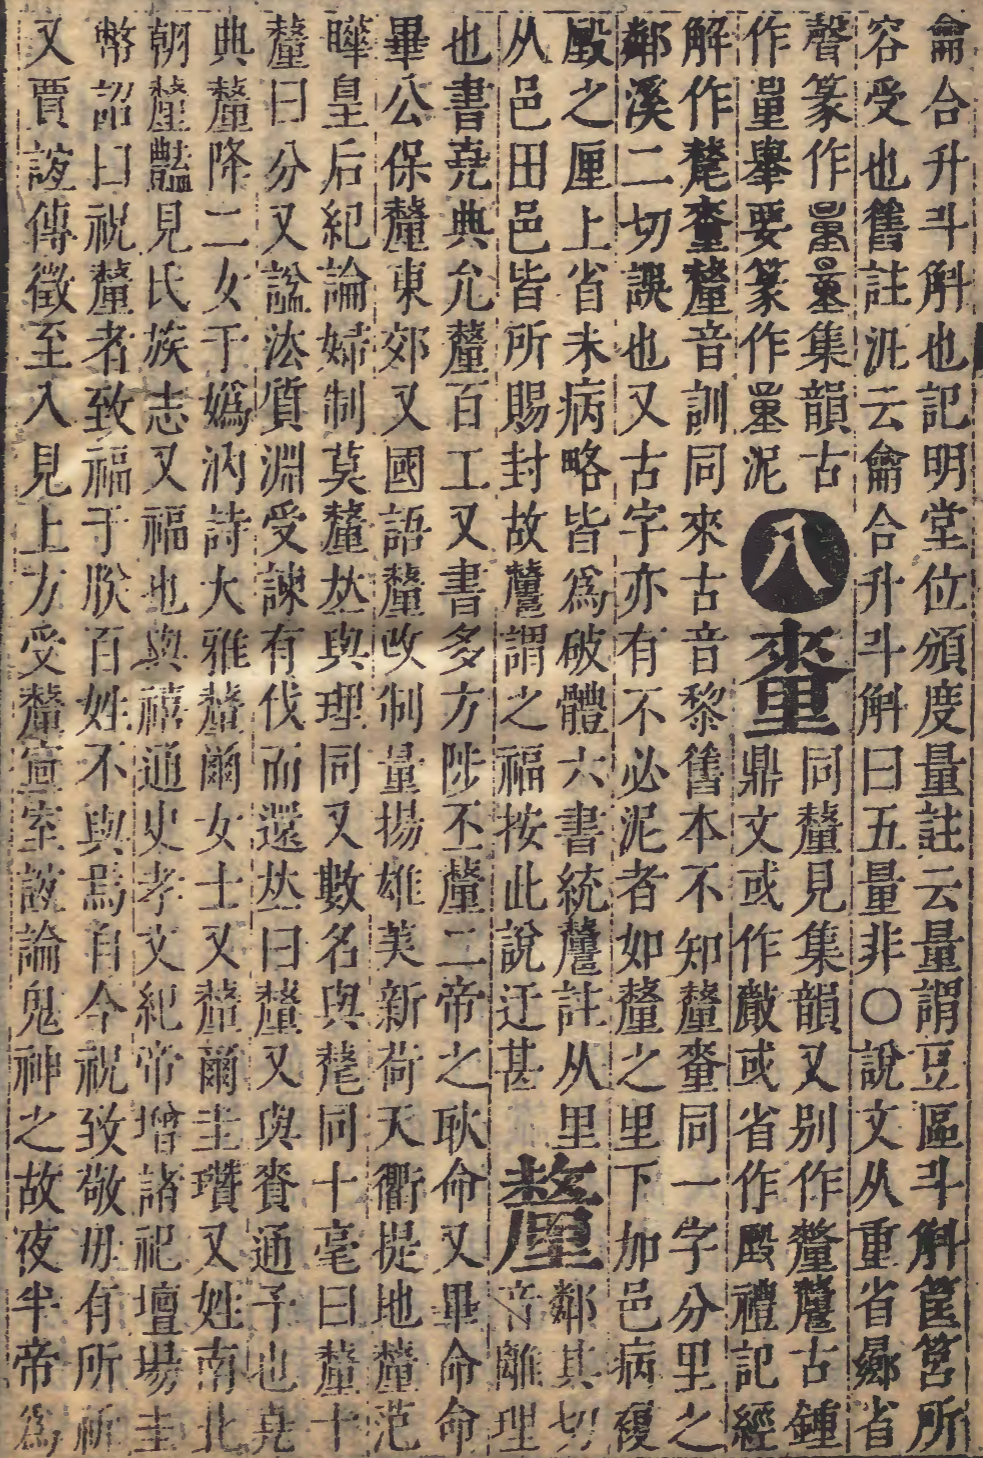 龠合升斗斛也記明堂位頒度量註云量謂豆區斗斛筐筥所
容受也舊註泥云龠合升斗斛曰五量非○說文从重省曏省
聲篆作量量集韻古
作量舉要篆作量泥
八
𨤲
同釐見集韻又別作釐𨤲古鍾
鼎文或作𠩺或省作𠩺禮記經
解作氂𨤲釐音訓同來古音黎舊本不知釐𨤲同一字分里之
鄰溪二切誤也又古字亦有不必泥者如釐之里下加邑病複
𠩺之厘上省未病略皆爲破體六書統𨤲註从里
从邑田邑皆所賜封故𨤲謂之福按此說迂甚
釐
鄰其切
音離理
也書堯典允釐百工又書多方陟丕釐二帝之耿命又畢命命
畢公保釐東郊又國語釐改制量揚雄美新荷天衢提地釐范
曄皇后紀論婦制莫釐𠀤與理同又數名與氂同十毫曰釐十
釐曰分又諡法質淵受諫有伐而還𠀤曰釐又與賚通予也堯
典釐降二女于嬀汭詩大雅釐爾女士又釐爾圭瓚又姓南北
朝釐豔見氏族志又福也與禧通史孝文紀帝增諸祀壇場圭
幣詔曰祝釐者致福于朕百姓不與焉自今祝致敬毋有所祈
又賈誼傳徵至入見上方受釐宣室誼論鬼神之故夜半帝爲